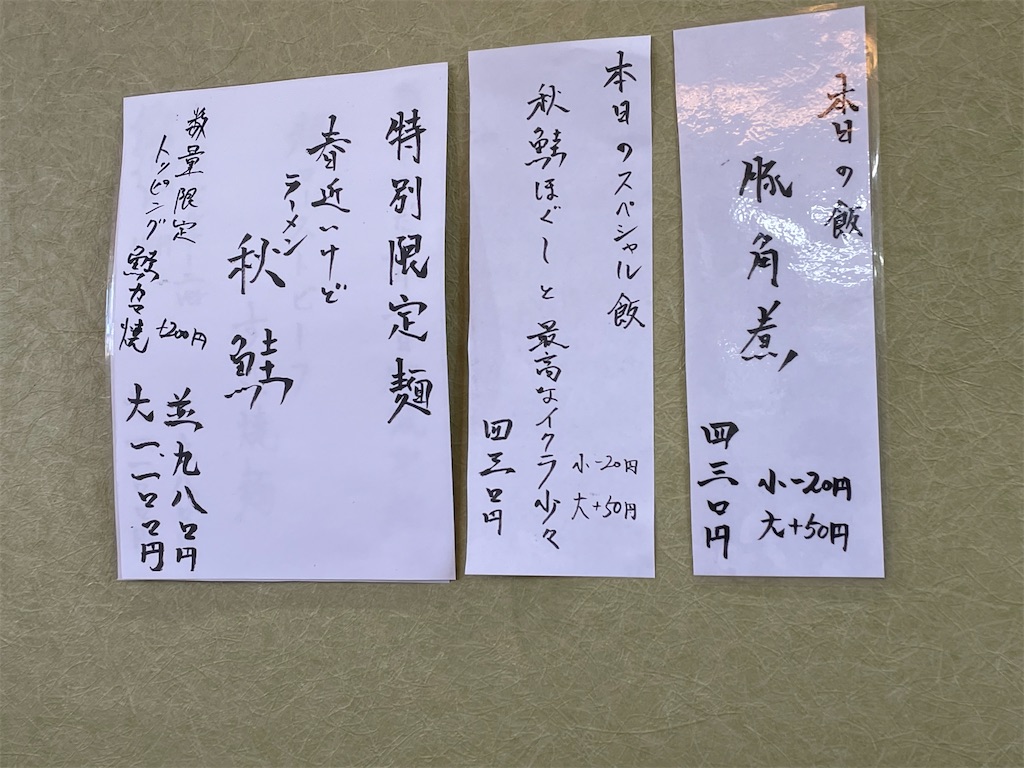 本日の飯
豚角煮
小-20円
大+50円
四三〇円
本日のスペシャル飯
秋鮭ほぐしと最高なイクラ少々
小-20円
大+50円
四三〇円
特別限定麺
春近いけど
ラーメン
秋鮭
数量限定
トッピング 鮭カマ焼
+200円
並九八〇円
大一、一〇〇円